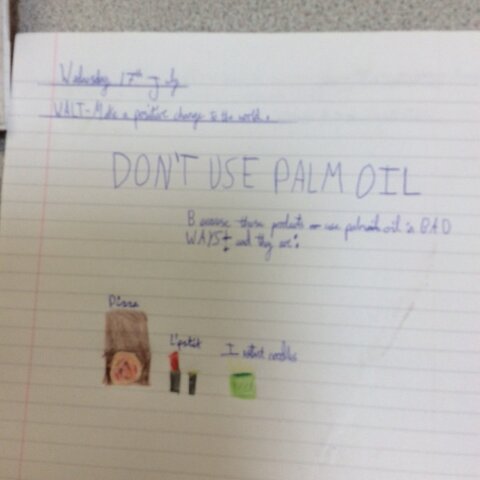 Wednesday 17th July
WALT- Make a positive change to the world.
DON'T USE PALM OIL
Because these products use palm oil in BAD
WAYS! and they are:
Pizza
Lipstick
Instant noodles